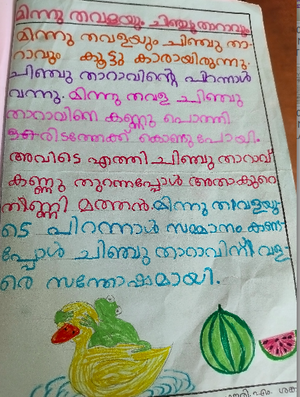 മിന്നു തവളയും ചിഞ്ചുതാറാവും
മിന്നു തവളയും ചിഞ്ചു താ-
റാവും കൂട്ടു കാരായിരുന്നു.
ചിഞ്ചു താറാവിന്റെ പിറന്നാൾ
വന്നു. മിന്നു തവള ചിഞ്ചു
താറാവിനെ കണ്ണു പൊത്തി
കൊണ്ടുപോയി.
അവിടെ എത്തി ചിഞ്ചു താറാവ്
കണ്ണു തുറന്നപ്പോൾ അതാകുറെ
തണ്ണി മത്തൻ മിന്നു തവളയു-
ടെ പിറന്നാൾ സമ്മാനം കണ്ട
പ്പോൾ ചിഞ്ചു താറാവിന് വള-
രെ സന്തോഷമായി.